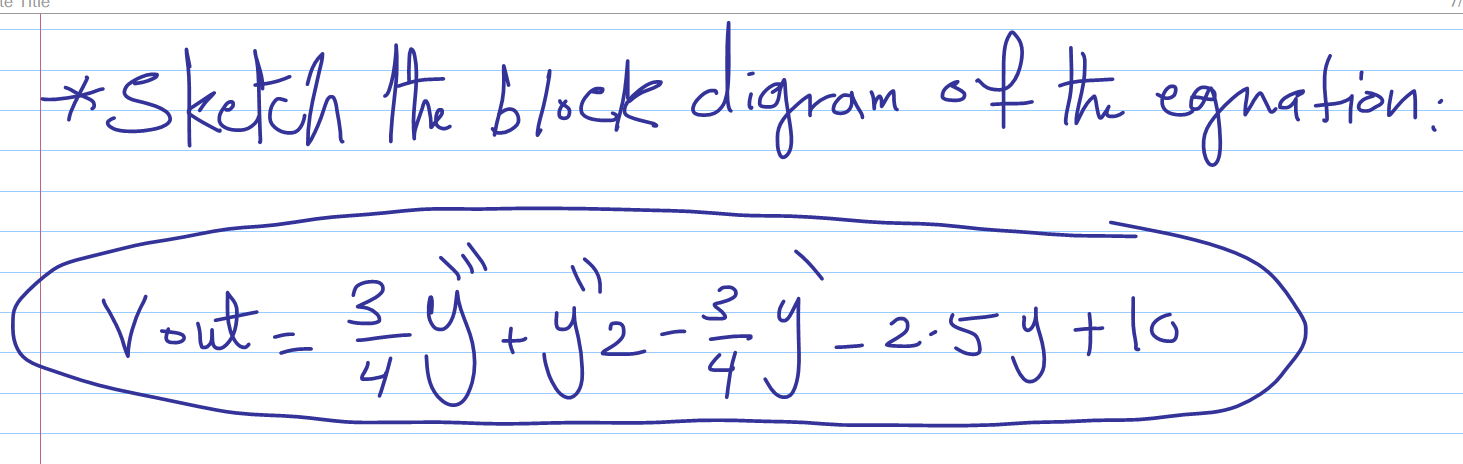 te Title 7/
*Sketch the block digram of the eqnation:
Vout = 3/4 y''' + y''2 - 3/4 y' - 2.5y + 10